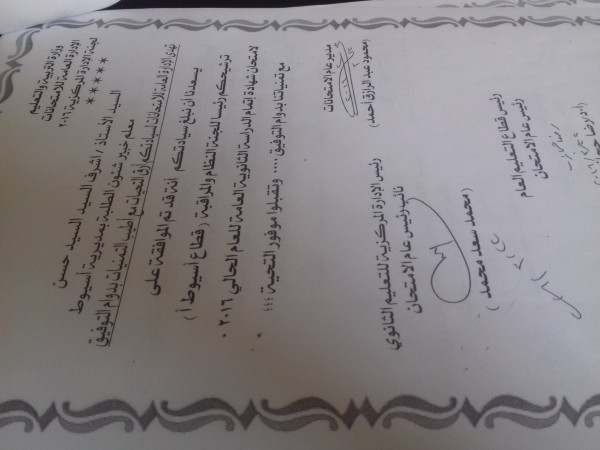 وزارة التربية والتعليم
الإدارة العامة للامتحانات
لجنة الإدارة المركزية ٢٠١٦
*****
السيد الأستاذ / اشرف السيد السيد حسن
معلم خبير شئون الطلبة بمديرية أسيوط
تهدي الإدارة العامة للامتحانات لسيادتكم أرق التحيات مع أطيب التمنيات بدوام التوفيق
يسعدنا أن نبلغ سيادتكم أنة قد تم الموافقة على
ترشيحكم رئيسا للجنة النظام والمراقبة ( قطاع أسيوط أ )
لامتحان شهادة إتمام الدراسة الثانوية العامة للعام الحالي ٢٠١٦ .
مع تمنياتنا بدوام التوفيق .... وتقبلوا موفور التحية ،،،
مدير عام الامتحانات
(محمود عبد الرازق أحمد)
رئيس الإدارة المركزية للتعليم الثانوي
نائب رئيس عام الامتحان
( محمد سعد محمد )
رئيس قطاع التعليم العام
رئيس عام الامتحان